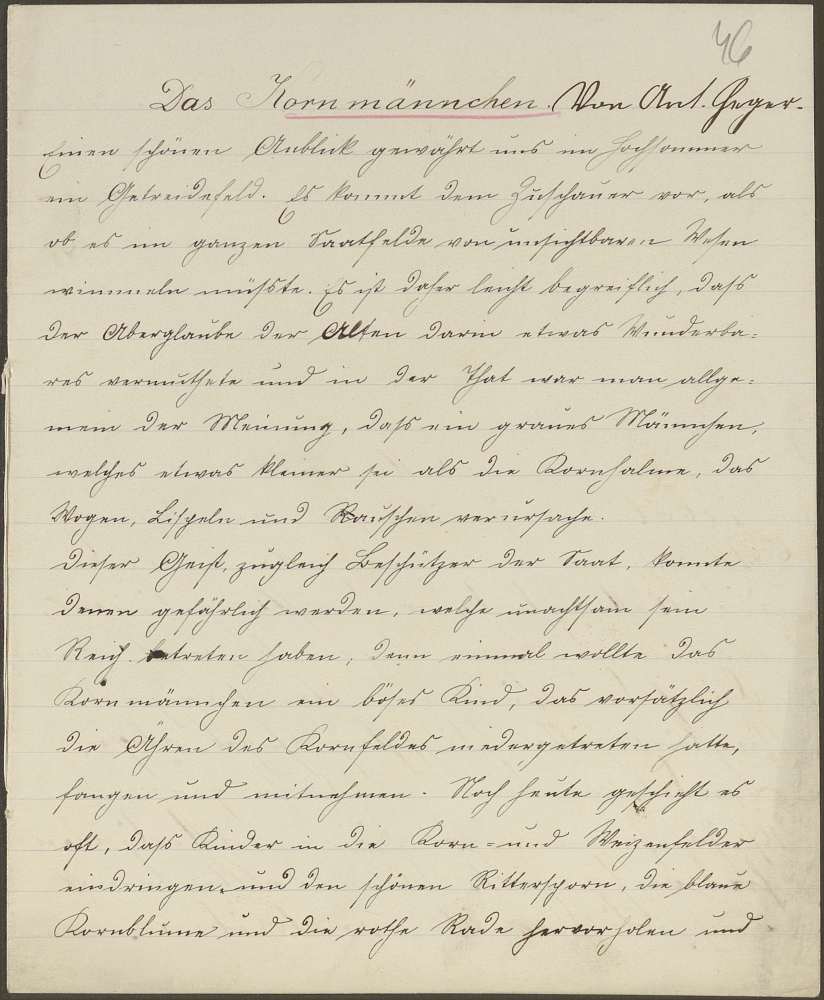 46
Das Kornmännchen. Von Ant. Geger.
Einen schönen Anblick gewährt uns im Hochsommer
ein Getreidefeld. Es kommt dem Zuschauer vor, als
ob es im ganzen Saatfelde von unsichtbaren Wesen
wimmeln müsste. Es ist daher leicht begreiflich, dass
der Aberglaube der Alten darin etwas Wunderba=
res vermuthete und in der That war man allge=
mein der Meinung, dass ein graues Männchen,
welches etwas kleiner sei als die Kornhalme, das
Wogen, Lispeln und Rauschen verursache.
Dieser Geist, zugleich Beschützer der Saat, konnte
denen gefährlich werden, welche unachtsam sein
Reich betreten haben; denn einmal wollte das
Kornmännchen ein böses Kind, das vorsätzlich
die Ähren des Kornfeldes niedergetreten hatte,
fangen und mitnehmen. Noch heute geschieht es
oft, dass Kinder in die Korn= und Weizenfelder
eindringen und den schönen Rittersporn, die blaue
Kornblume und die rothe Rade hervorholen und